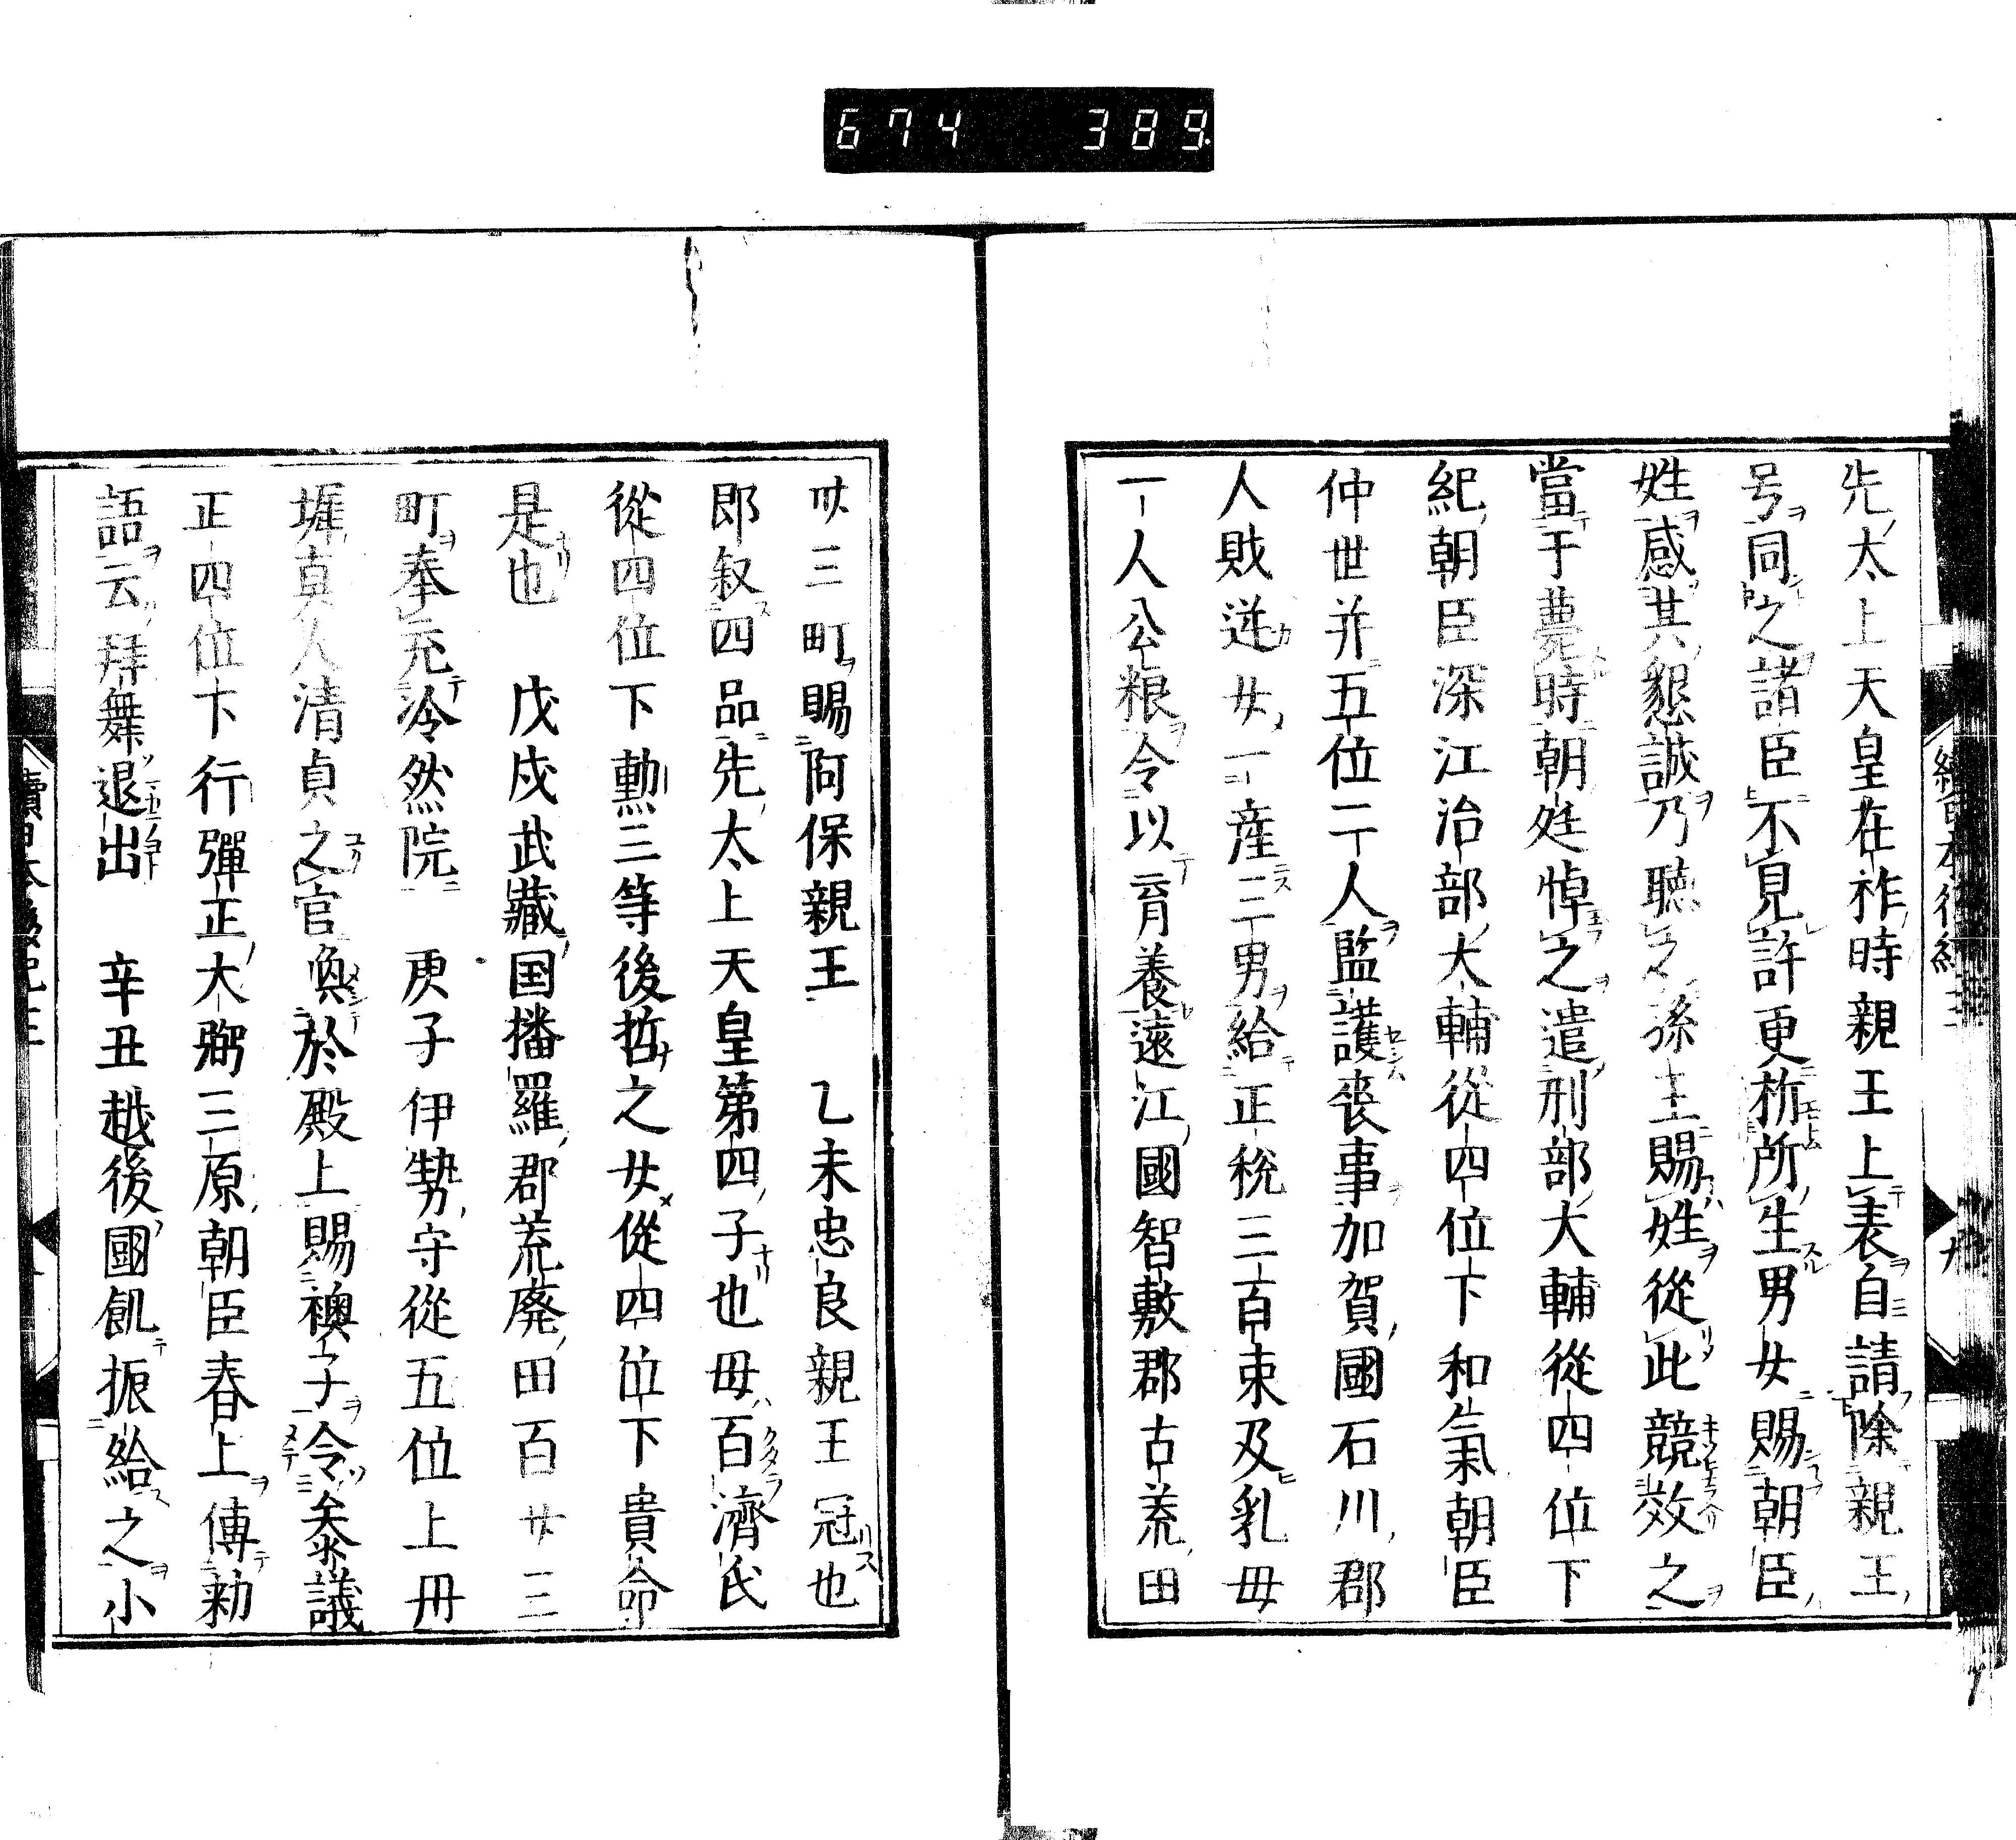 674 389
先太上天皇在祚時親王上表自請除親王
号同之諸臣不見許更析所生男女賜朝臣
姓感其懇誠乃聴之孫王賜姓從此競效之
當于薨時朝廷悼之遣刑部大輔從四位下
紀朝臣深江治部大輔從四位下和氣朝臣
仲世并五位二人監護喪事加賀國石川郡
人財逆女一産三男給正税三百束及乳母
一人公粮令以育養遠江國智敷郡古荒田
卅三町賜阿保親王 乙未忠良親王冠也
即叙四品先太上天皇第四子也母百濟氏
從四位下勲三等後哲之女從四位下貴命
是也 戊戌武藏国播羅郡荒廃田百廿三
町奉充冷然院 庚子伊勢守從五位上丹
墀真人清貞之官喚於殿上賜襖子令参議
正四位下行彈正大弼三原朝臣春上傳勅
語云拜舞退出 辛丑越後國飢振給之小